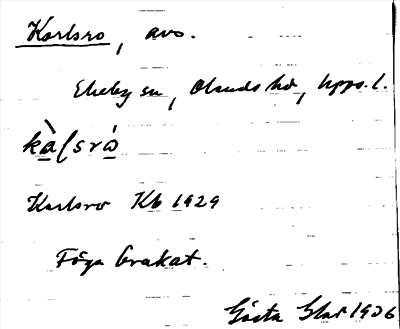 Karlsro, avs.
Ekeby sn, Olands hd, Upps. l.
kà̱ʃsrá̱
Karlsro Kb 1929
Föga brukat.
Gösta 1936